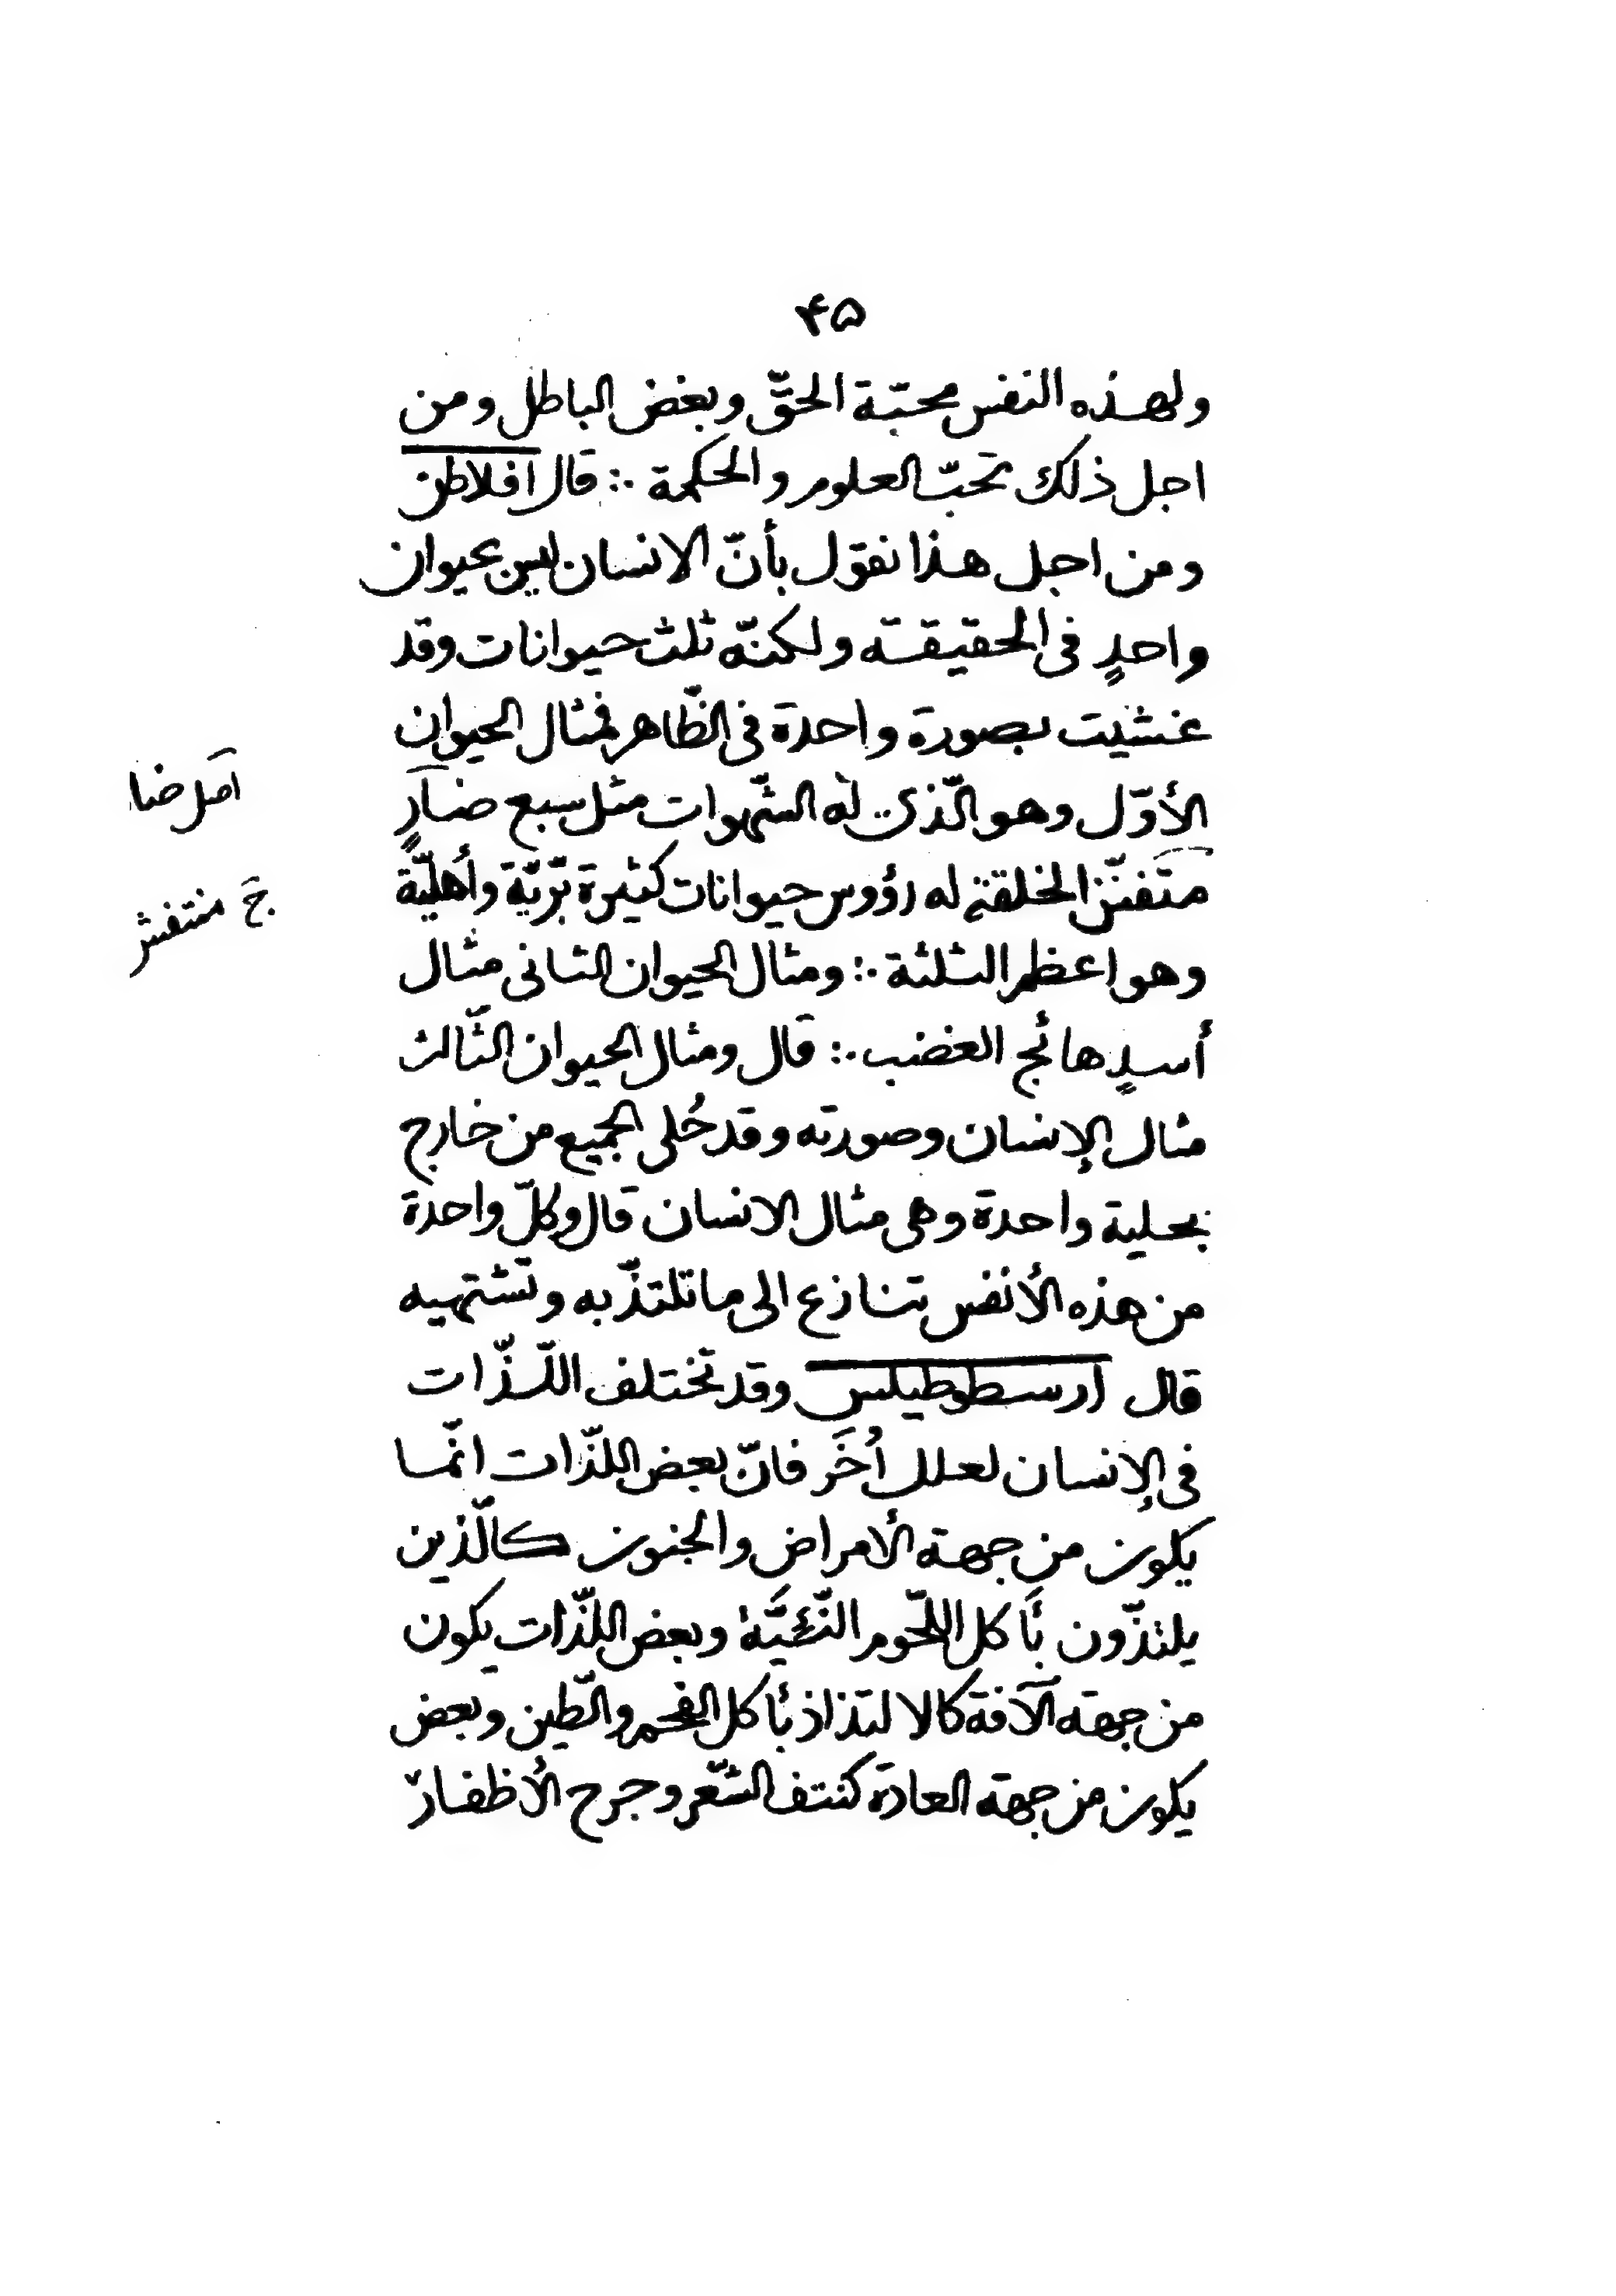 ۴۵
ولهذه النفس محبّة الحقّ وبغض الباطل ومن
اجل ذلك تحبّ العلوم والحكمة ∴ قال افلاطن
ومن اجل هذا نقول بأنّ الانسان ليس بحيوان
واحدٍ فى الحقيقة ولكنّه ثلث حيوانات وقد
غشيت بصورة واحدة فى الظّاهر فمثال الحيوان
الأوّل وهو الّذى له الشّهوات مثل سبع ضارٍ
متفنّن الخلقة له رؤوس حيوانات كثيرة برّيّة وأهليّة
وهو اعظم الثلثة ∴ ومثال الحيوان الثانى مثال
أسدٍ هائج الغضب ∴ قال ومثال الحيوان الثّالث
مثال الإنسان وصورته وقد حُلى الجميع من خارج
بحلية واحدة وهى مثال الانسان قال وكلّ واحدة
من هذه الأنفس تنازع الى ما تلتذّ به وتشتهيه
قال ارسطوطيلس وقد تختلف اللّذّات
فى الإنسان لعلل أُخَر فانّ بعض اللذّات انّما
يكون من جهة الأمراض والجنون كالّذين
يلتذّون بأكل اللّحوم النّئيَّة وبعض اللذّات يكون
من جهة الآفة كالالتذاذ بأكل الفحم والطّين وبعض
يكون من جهة العادة كنتف الشّعر وجرح الأظفار
اصل ضا
خ منتفش